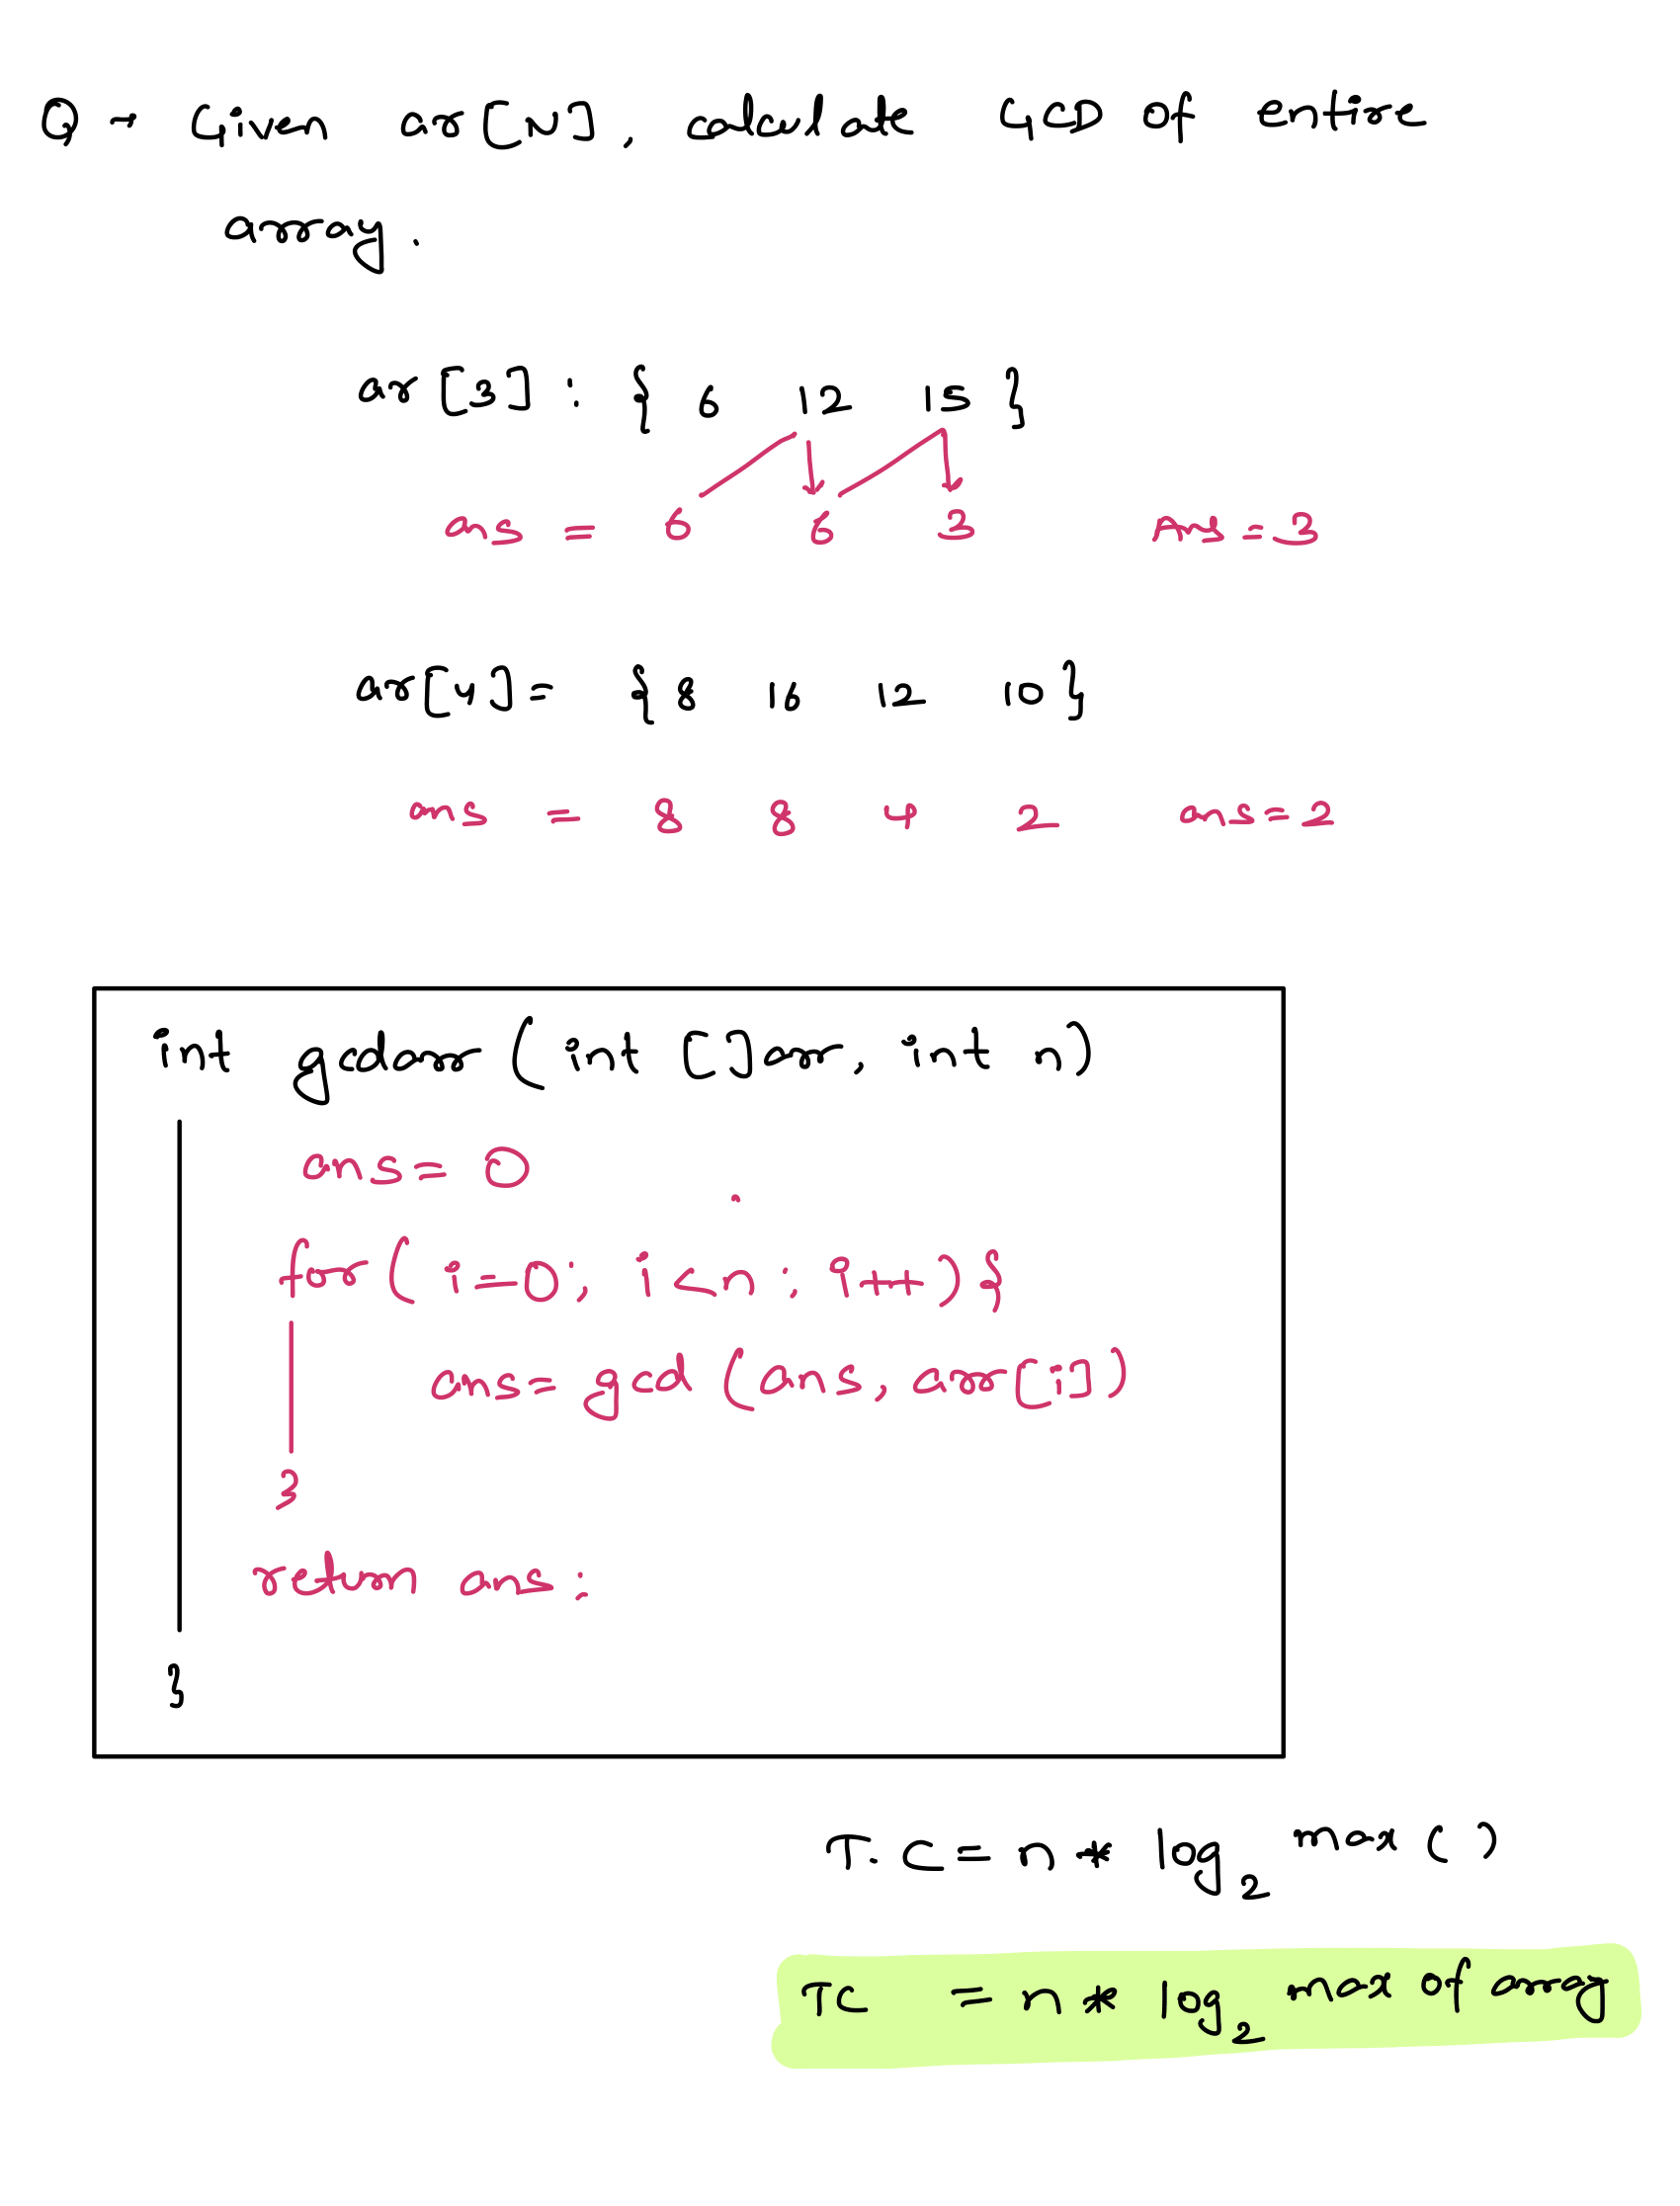 Q → Given ar[N], calculate GCD of entire
array.
ar[3] : { 6 12 15 }
ans = 6 6 3 Ans = 3
ar[4] = { 8 16 12 10 }
ans = 8 8 4 2 ans = 2
int gcdarr ( int []arr, int n)
ans = 0
for( i=0; i<n; i++ ) {
ans = gcd (ans, arr[i])
}
return ans;
}
T.C = n * log2 max ( )
TC = n * log2 max of array